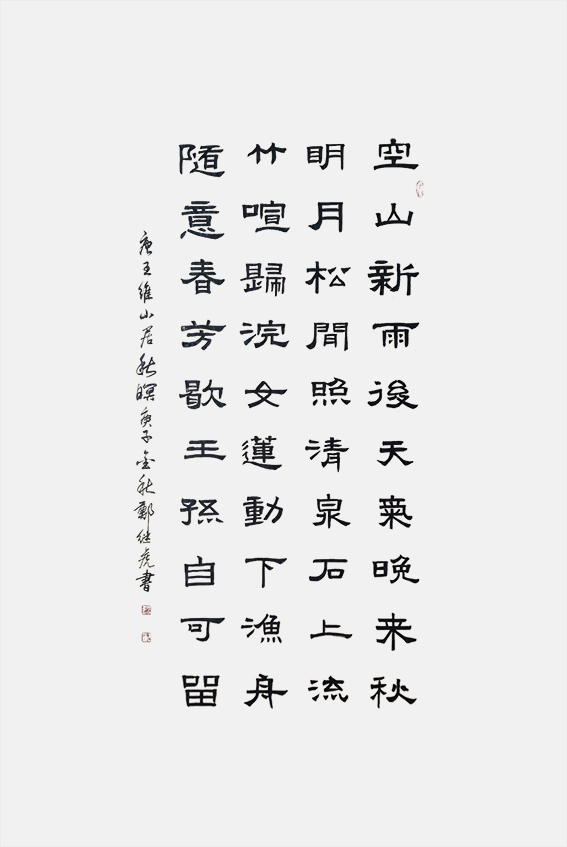 空山新雨後天氣晚来秋
明月松間照清泉石上流
竹喧歸浣女蓮動下漁舟
随意春芳歇王孫自可留
唐王維山居秋暝庚子金秋鄭继虎書